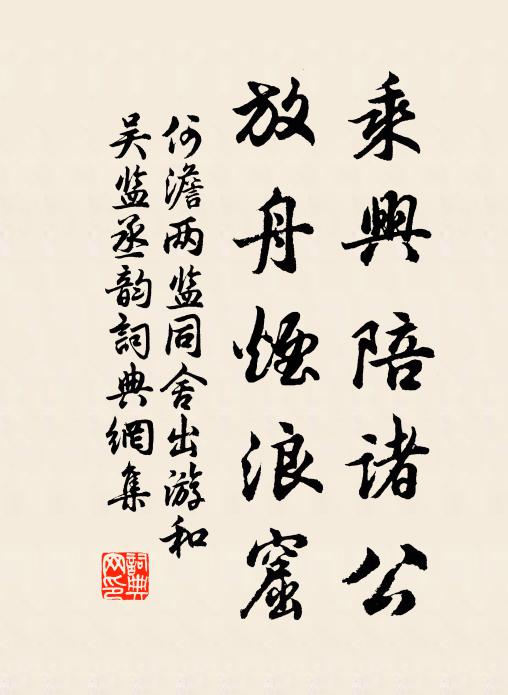 乘興陪诸公
放舟煙浪窟
何澹两监同舍出游和
吴监丞韵詞典網集
詞典网印